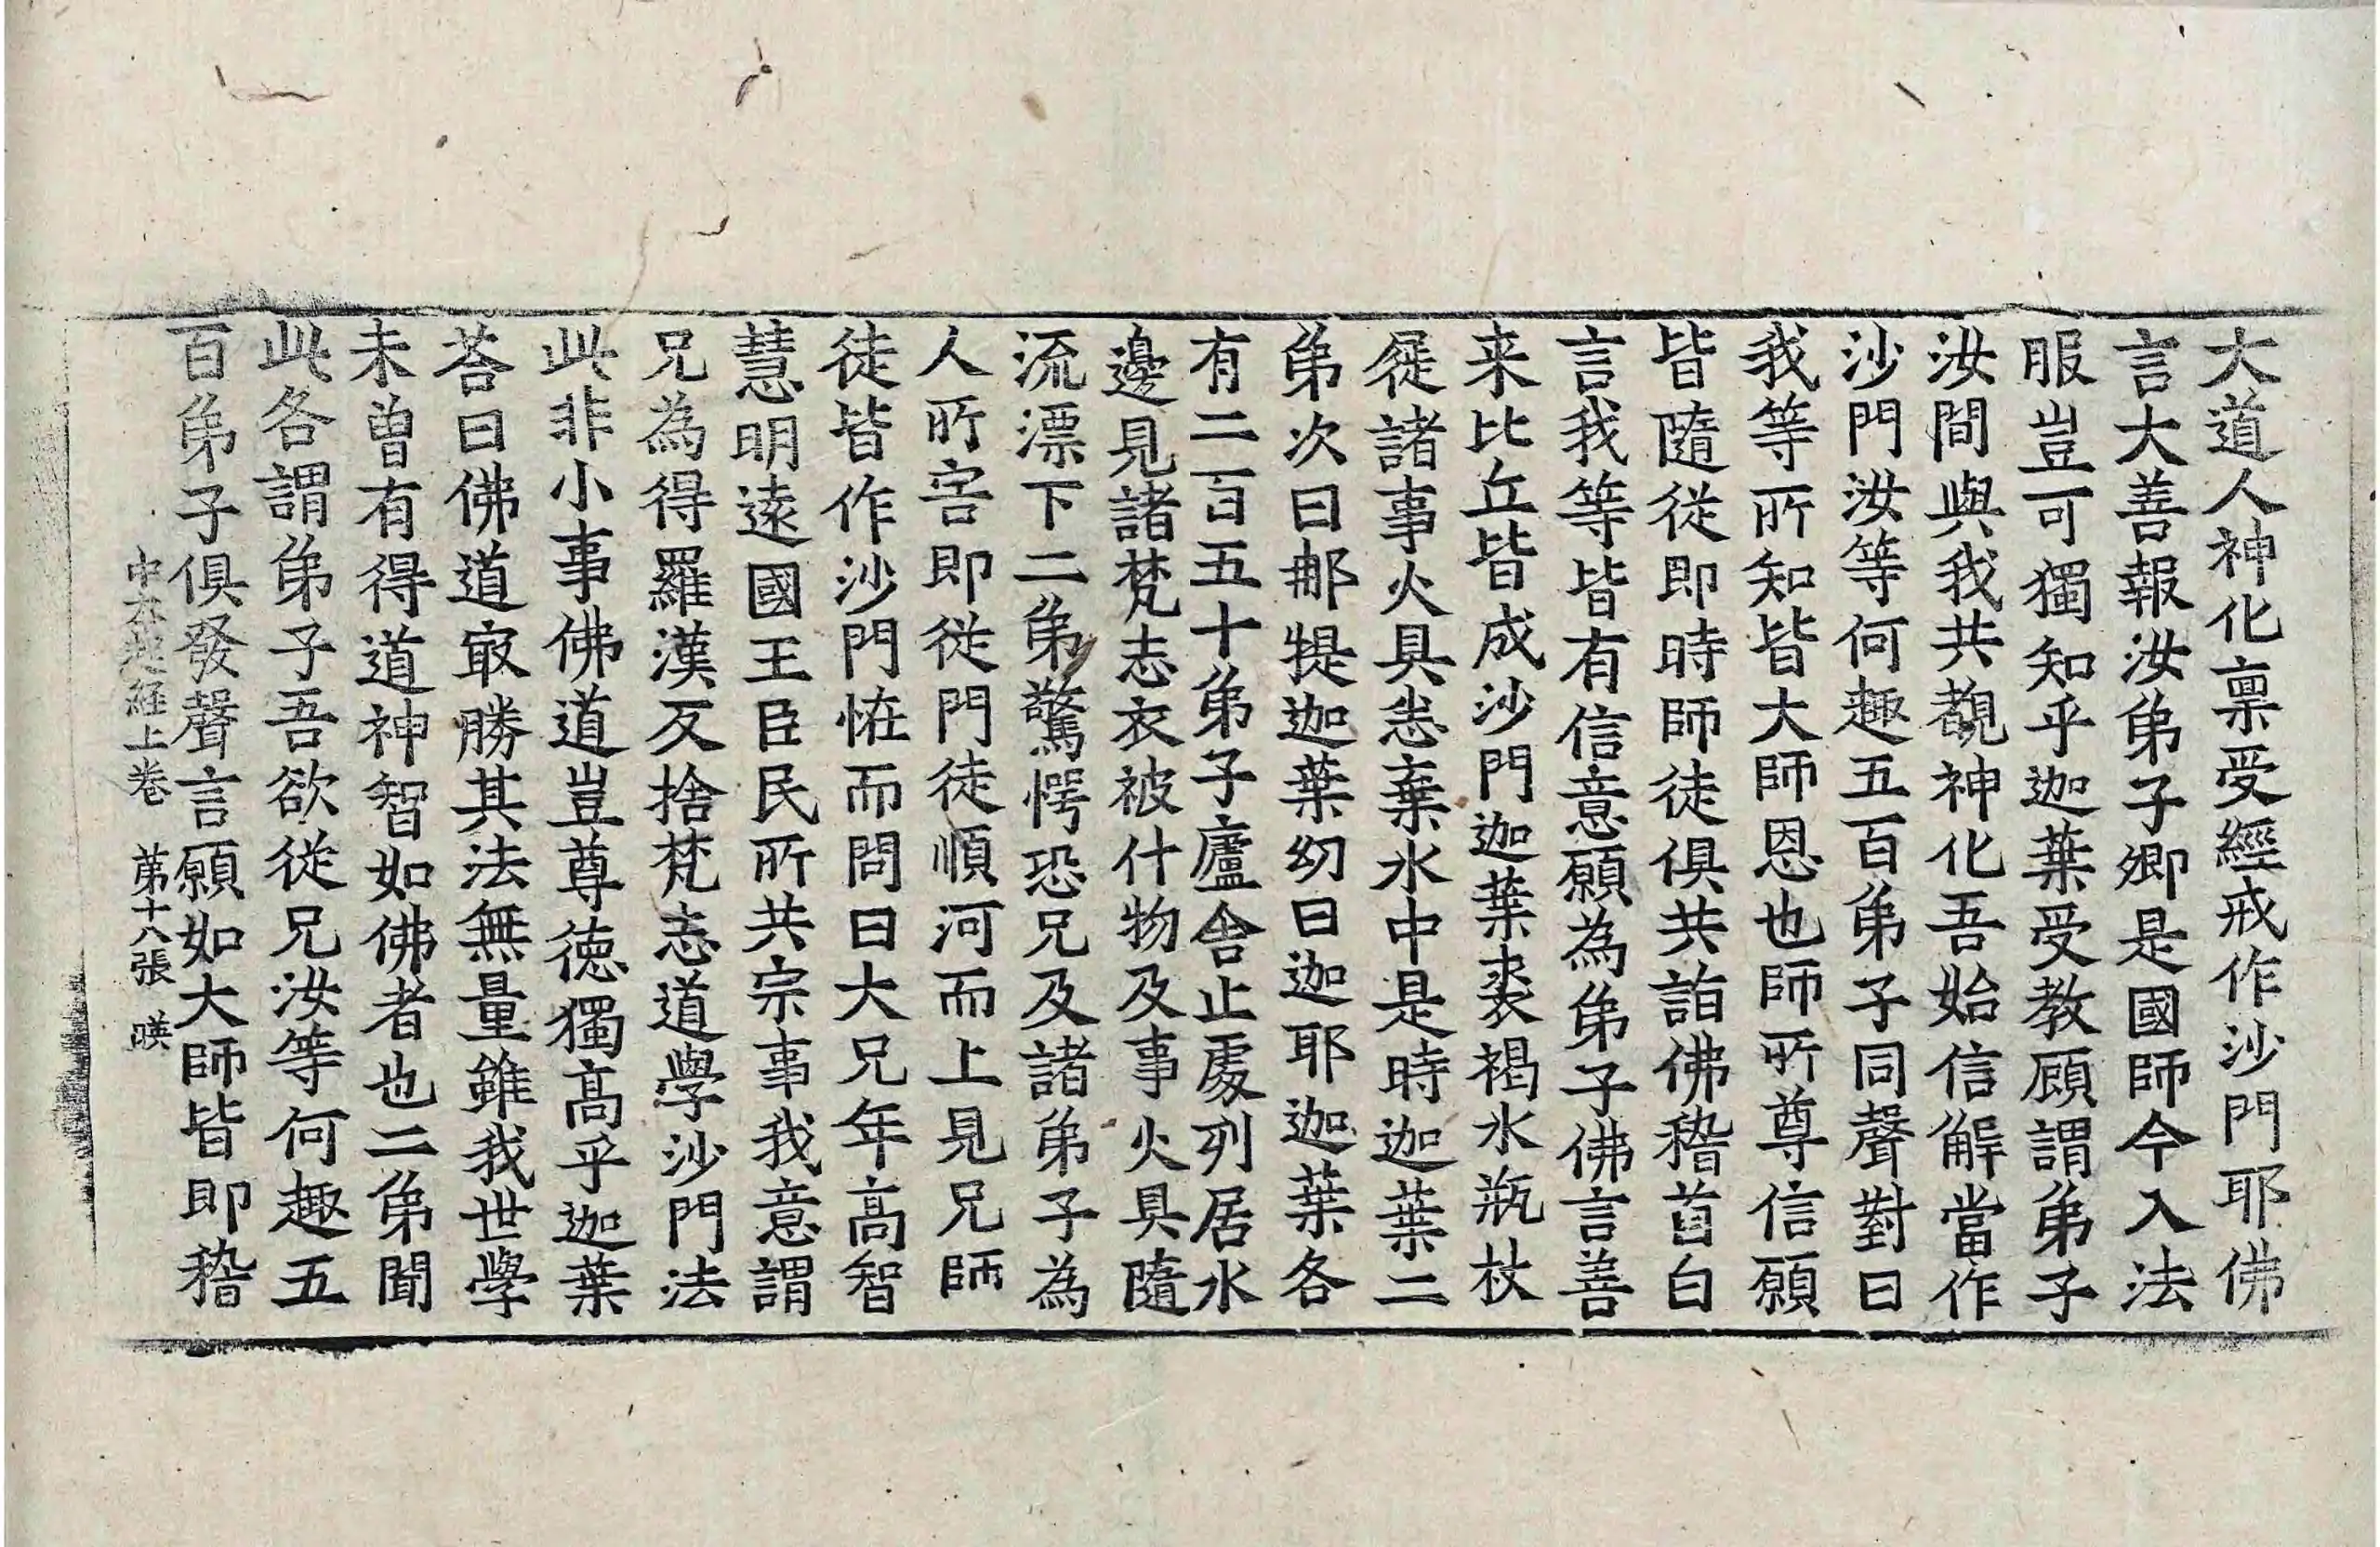 大道人神化禀受經戒作沙門耶佛
言大善報汝弟子卿是國師今入法
服豈可獨知乎迦葉受教顧謂弟子
汝間與我共覩神化吾始信解當作
沙門汝等何趣五百弟子同聲對曰
我等所知皆大師恩也師所尊信願
皆隨從即時師徒俱共詣佛稽首白
言我等皆有信意願為弟子佛言善
来比丘皆成沙門迦葉裘褐水瓶杖
屣諸事火具悉棄水中是時迦葉二
弟次曰那提迦葉幼曰迦耶迦葉各
有二百五十弟子廬舍止處列居水
邊見諸梵志衣被什物及事火具隨
流漂下二弟驚愕恐兄及諸弟子為
人所害即從門徒順河而上見兄師
徒皆作沙門恠而問曰大兄年高智
慧明遠國王臣民所共宗事我意謂
兄為得羅漢反捨梵志道學沙門法
此非小事佛道豈尊德獨高乎迦葉
荅曰佛道㝡勝其法無量雖我世學
未曾有得道神智如佛者也二弟聞
此各謂弟子吾欲從兄汝等何趣五
百弟子俱發聲言願如大師皆即稽
中本起經上卷 第十八張 暎